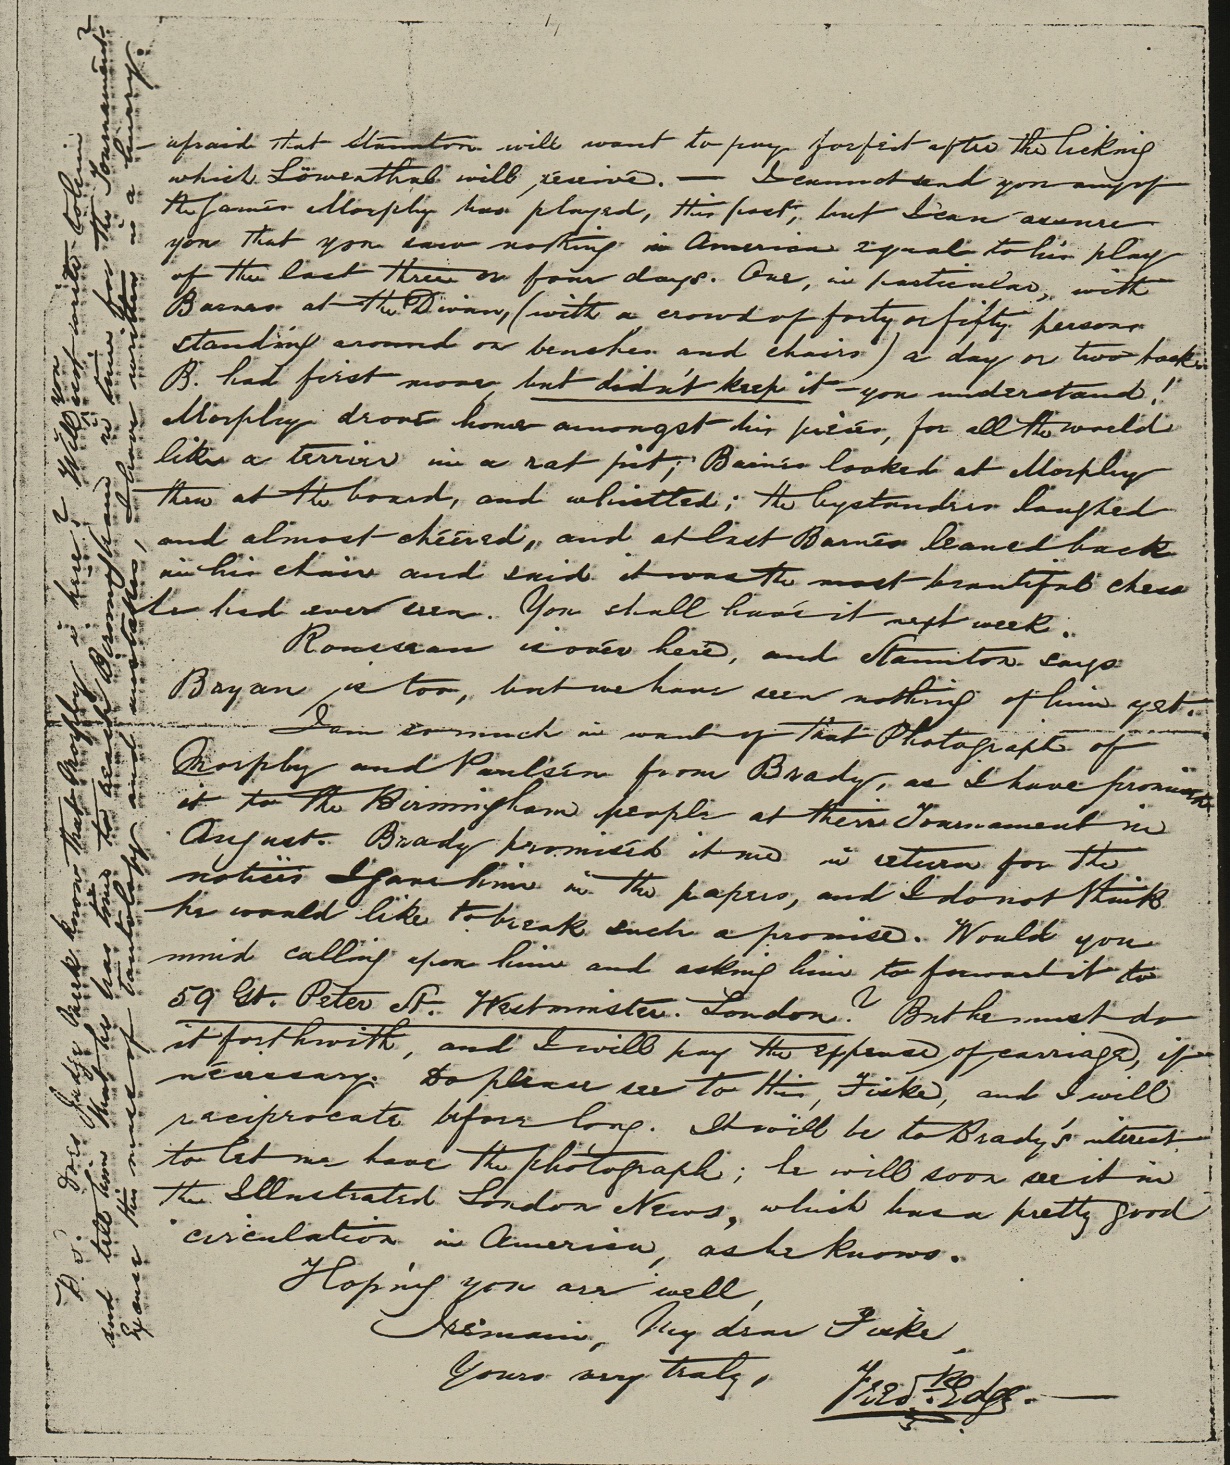 afraid that Staunton will want to pay forfeit after the licking
which Löwenthal will receive. — I cannot send you any of
the games Morphy has played, this post, but I can assure
you that you saw nothing in America equal to his play
of the last three or four days. One, in particular, with
Barnes at the Divan, (with a crowd of forty or fifty persons
standing around on benches and chairs) a day or two back.
B. had first move, but didn't keep it – you understand!
Morphy drove home amongst his pieces, for all the world
like a terrier in a rat pit; Barnes looked at Morphy
then at the board, and whistled; the bystanders laughed
and almost cheered, and at last Barnes leaned back
in his chair and said it was the most beautiful chess
he had ever seen. You shall have it next week.
Rousseau is over here, and Staunton says
Bryan is too, but we have seen nothing of him yet.
I am so much in want of that Photograph of
Morphy and Paulsen from Brady, as I have promised
it to the Birmingham people at their Tournament in
August. Brady promised it me in return for the
notices I gave him in the papers, and I do not think
he would like to break such a promise. Would you
mind calling upon him and asking him to forward it to
59 Gt. Peter St. Westminster. London? But he must do
it forthwith, and I will pay the expense of carriage, if
necessary. Do please see to this, Fiske, and I will
reciprocate before long. It will be to Brady's interest
to let me have the photograph; he will soon see it in
the Illustrated London News, which has a pretty good
circulation in America, as he knows.
Hoping you are well,
I remain, My dear Fiske
Yours very truly,
Fred. Edge.
P.S. Does Judge Meek know that Morphy is here? Will you not write to him
and tell him that he has time to reach Birmingham in time for the Tournament?
Excuse this mess of tautology and mistakes, I have written in a hurry.